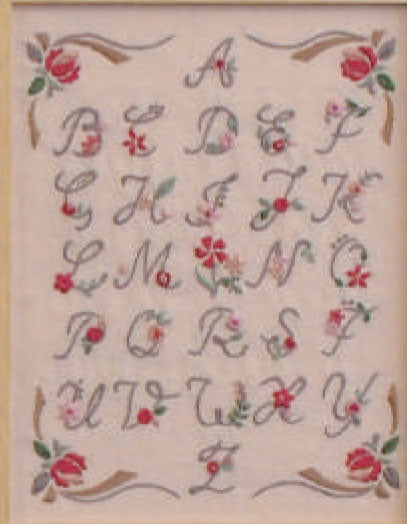 A
B C D E F
G H I J K
L M N O
P Q R S T
U V W X Y
Z